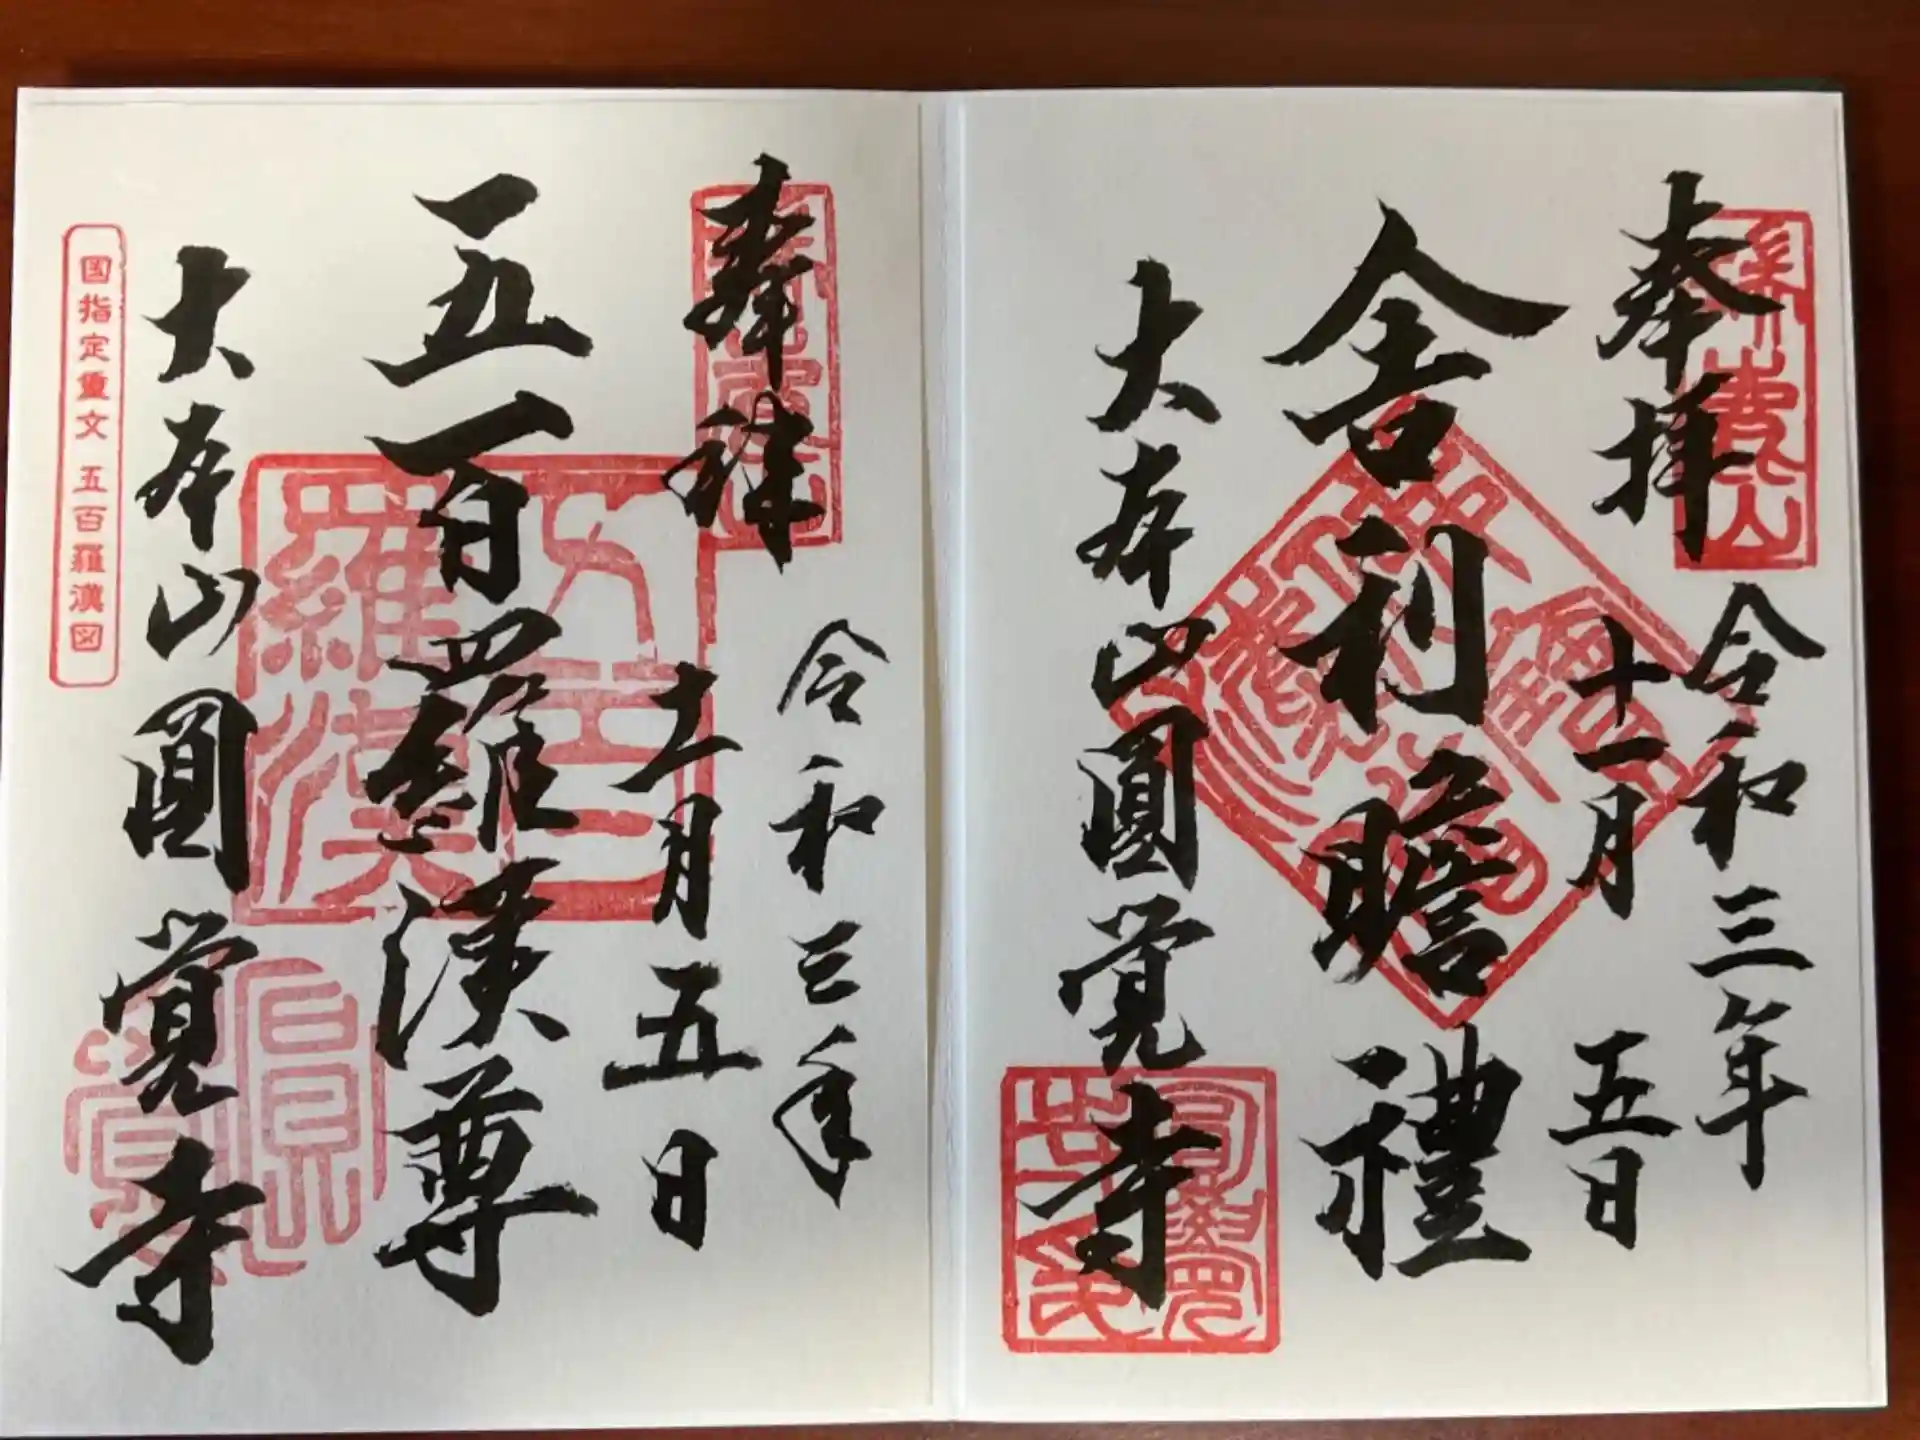 奉拝
令和三年
十一月五日
舎利瞻禮
大本山圓覚寺
奉拝
令和三年
十一月五日
五百羅漢尊
大本山圓覚寺
五百羅漢
国指定重文 五百羅漢図